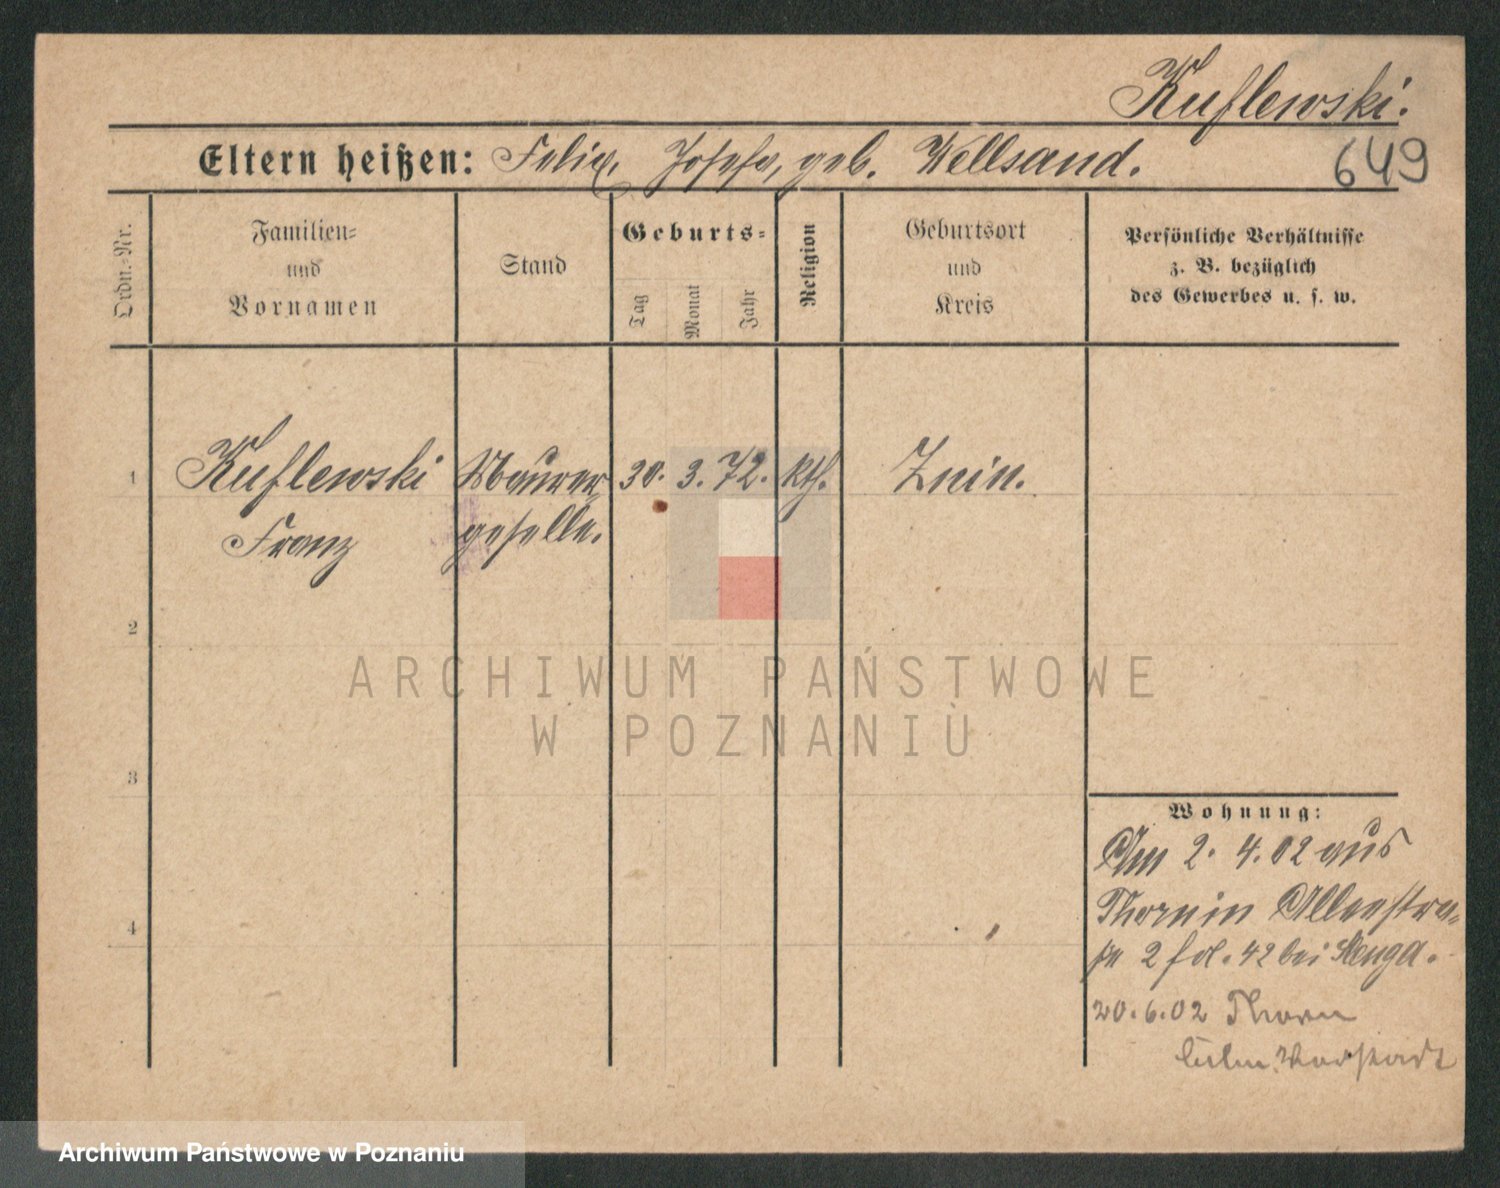 Kuflewski.
649
Eltern heißen: Felix, Josefa, geb. Wellsand.
Ordn.-Nr.
Familien-
und
Vornamen
Stand
Geburts-
Tag
Monat
Jahr
Religion
Geburtsort
und
Kreis
Persönliche Verhältnisse
z. B. bezüglich
des Gewerbes u. s. w.
1 Kuflewski Maurer- 30. 3. 72. kth. Znin.
Franz geselle.
2
3
4
Wohnung:
Am 2. 4. 02 aus
Thorn in
2 fol. 42 bei
20. 6. 02 Thorn
Culm. Vorstadt
ARCHIWUM PAŃSTWOWE
W POZNANIU
Archiwum Państwowe w Poznaniu